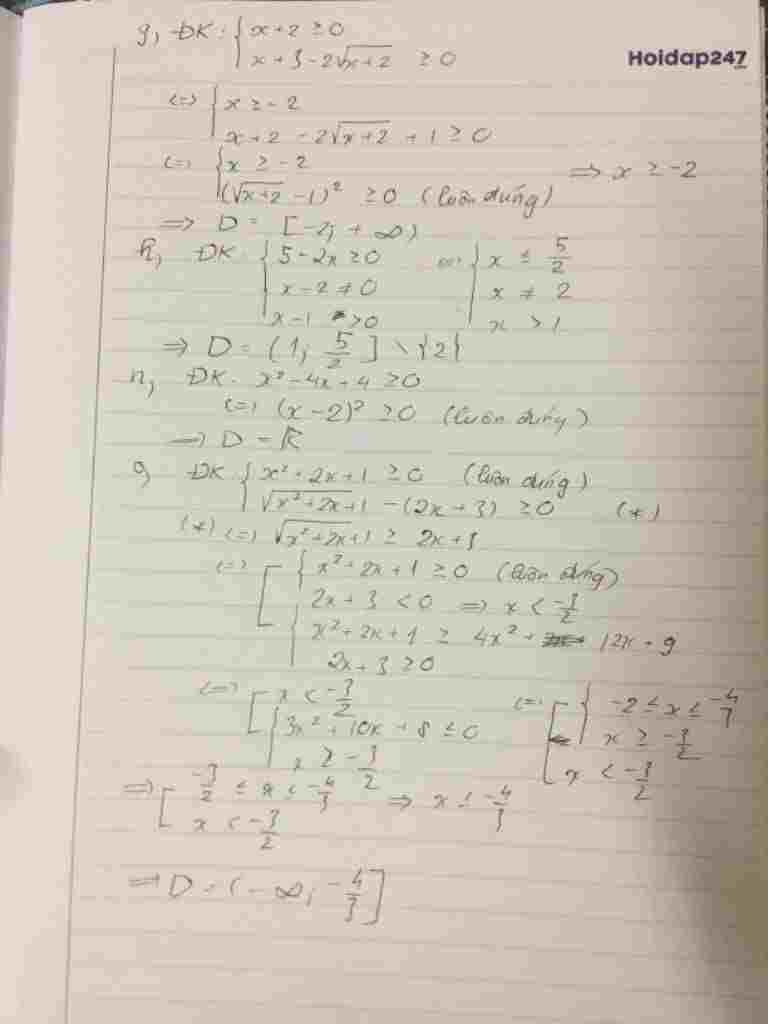 g, ĐK: { x+2 ≥ 0
x+3-2√(x+2) ≥ 0
Hoidap247
.com
<=> { x ≥ -2
x+2 -2√(x+2) +1 ≥ 0
<=> { x ≥ -2
(√(x+2) -1)² ≥ 0 (luôn đúng)
=> x ≥ -2
=> D = [-2; +∞)
k, ĐK { 5-2x ≥ 0
x-2 ≠ 0
x-1 > 0
<=> { x ≤ 5/2
x ≠ 2
x > 1
=> D = (1; 5/2] \ {2}
n, ĐK: x²-4x+4 ≥ 0
<=> (x-2)² ≥ 0 (luôn đúng)
=> D = R
q ĐK { x²+2x+1 ≥ 0 (luôn đúng)
√(x²+2x+1) -(2x+3) ≥ 0 (*)
(*) <=> √(x²+2x+1) ≥ 2x+3
<=> [ { x²+2x+1 ≥ 0 (luôn đúng)
2x+3 < 0 => x < -3/2
{ x²+2x+1 ≥ 4x²+ 12x+9
2x+3 ≥ 0
<=> [ x < -3/2
{ 3x²+10x+8 ≤ 0
x ≥ -3/2
<=> [ { -2 ≤ x ≤ -4/3
x ≥ -3/2
x < -3/2
=> [ -3/2 ≤ x ≤ -4/3
x < -3/2
=> x ≤ -4/3
=> D = (-∞; -4/3]